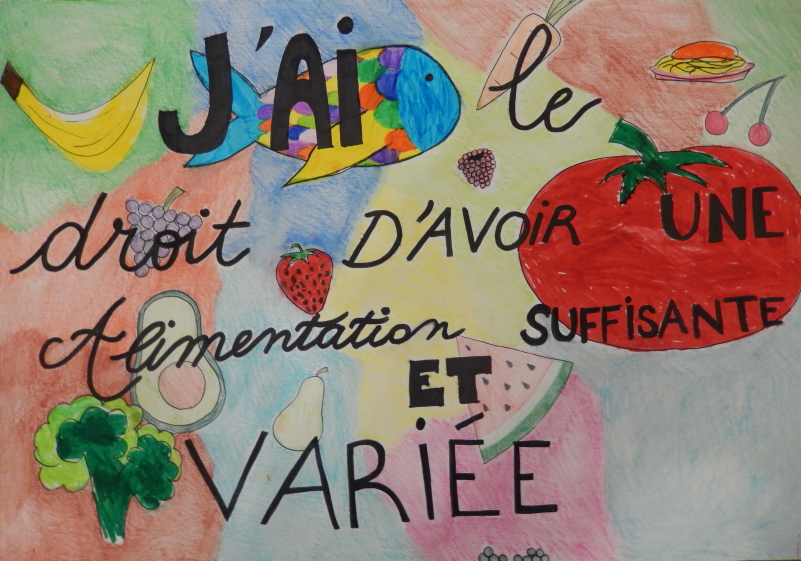 J'Ai le
droit D'AVOiR UNE
Alimentation SUFFiSANTE
ET
VARiÉE